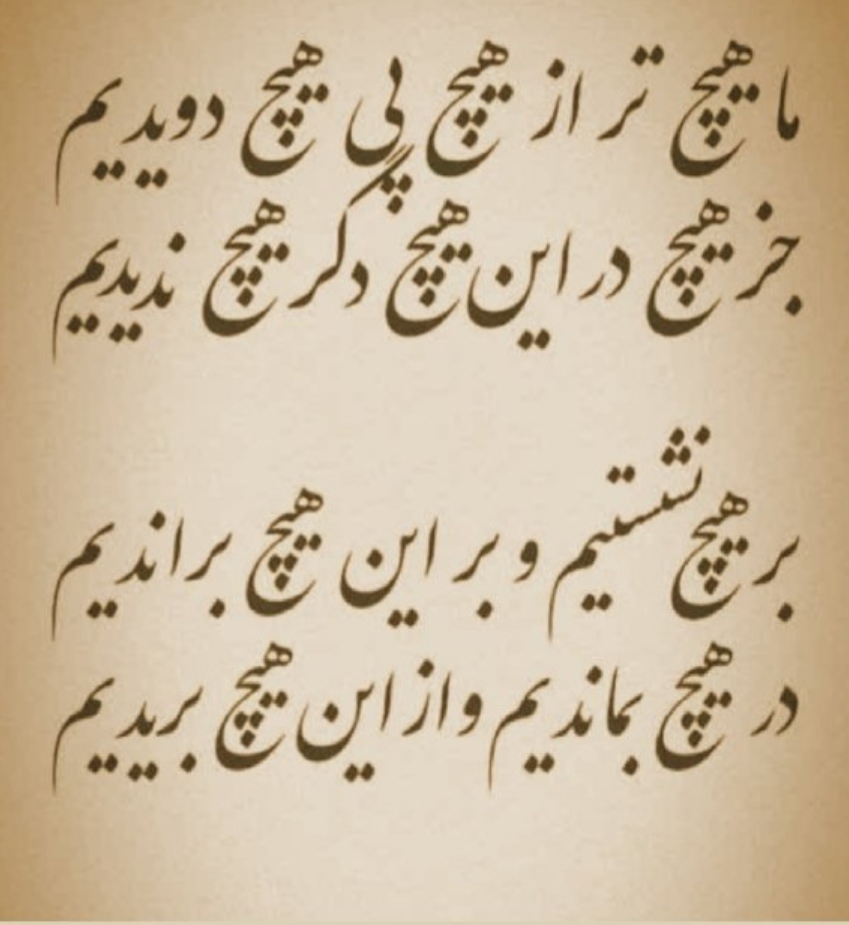 ما هیچ تر از هیچ پی هیچ دویدیم
جز هیچ در این هیچ دگر هیچ ندیدیم
بر هیچ نشستیم و بر این هیچ براندیم
در هیچ بماندیم و از این هیچ بریدیم